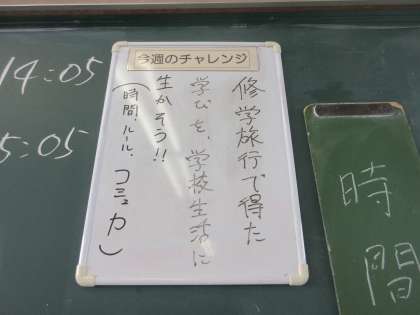 今週のチャレンジ
修学旅行で得た
学びを、学校生活に
生かそう!!
(時間、ルール、コミュ力)
14:05
5:05
時間